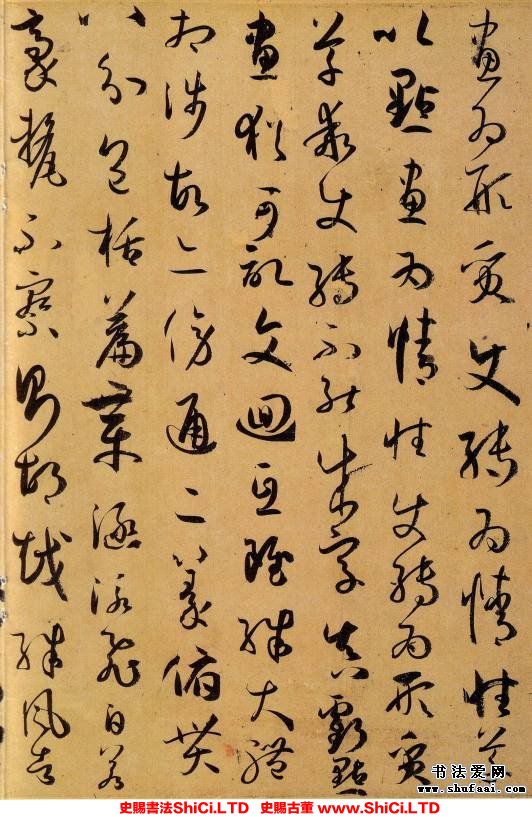 畫為形質使轉為情性草
以點畫為情性使轉為形質
草乖使轉不能成字真虧點
畫猶可記文迴互雖殊大體
相涉故亦傍通二篆俯貫
八分包括篇章涵泳飛白若
毫釐不察則胡越殊風者
书法爱网
www.shufaai.com
史賜書法ShiCi.LTD 史賜古董 www.ShiCi.LTD